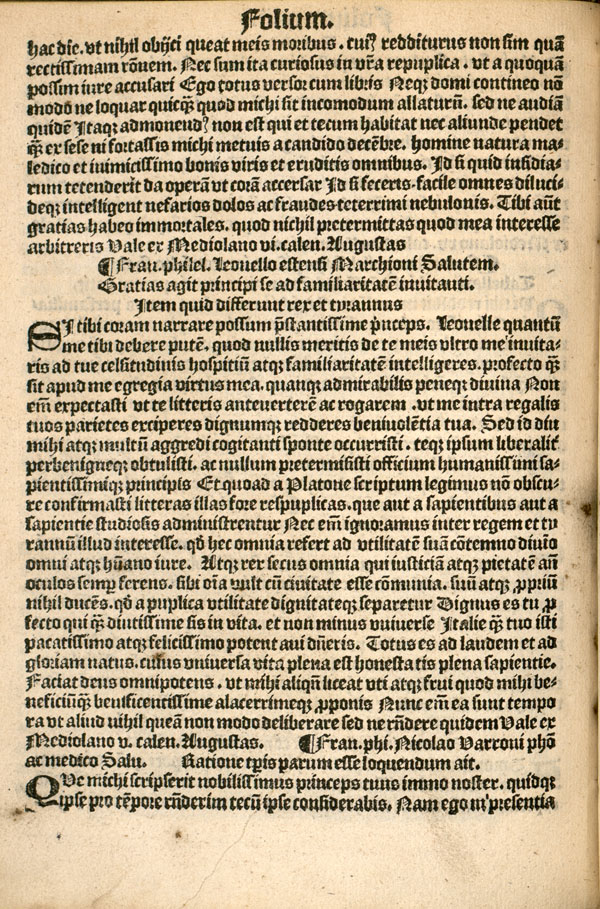 Folium.
hac die. vt nihil obijci queat meis moribus. cui⁹ redditurus non sim quã
rectissimam rõnem. Nec sum ita curiosus in vr̃a republica. vt a quoquã
possim iure accusari Ego totus versor cum libris Neqꝫ domi contineo nõ
modo ne loquar quicqꝫ quod michi sit incomodum allaturũ. sed ne audiã
quidẽ Itaqꝫ admonend⁹ non est qui et tecum habitat nec aliunde pendet
qꝫ̃ ex sese ni fortassis michi metuis a candido decẽbre. homine natura ma⸗
ledico et inimicissimo bonis viris et eruditis omnibus. Id si quid insidia⸗
rum tetenderit da operã vt corã accersar Id si feceris. facile omnes diluci⸗
deqꝫ intelligent nefarios dolos ac fraudes teterrimi nebulonis. Tibi aũt
gratias habeo immortales. quod nichil pretermittas quod mea interesse
arbitreris Vale ex Mediolano vi. calen. Augustas
¶ Fran. philel. Leouello estensi Marchioni Salutem.
Gratias agit principi se ad familiaritatẽ inuitanti.
Item quid differunt rex et tyrannus
SI tibi coram narrare possum p̃stantissime p̃nceps. Leouelle quantũ
me tibi debere putẽ. quod nullis meritis de te meis vltro me inuita⸗
ris ad tue celsitudinis hospitiũ atqꝫ familiaritatẽ intelligeres. profecto qꝫ̃
sit apud me egregia virtus mea. quanqꝫ admirabilis peneqꝫ diuina Non
em̃ expectasti vt te litteris anteuerterẽ ac rogarem. vt me intra regalis
tuos parietes exciperes dignumqꝫ redderes beniuolẽtia tua. Sed id diu
mihi atqꝫ multũ aggredi cogitanti sponte occurristi. teqꝫ ipsum liberalit̃
perbenigneqꝫ obtulisti. ac nullum pretermisisti officium humanissimi sa⸗
pientissimiqꝫ principis Et quoad a Platone scriptum legimus nõ obscu⸗
re confirmasti litteras illas fore respuplicas. que aut a sapientibus aut a
sapientie studiosis administrentur Nec em̃ ignoramus inter regem et ty
rannũ illud interesse. qð hec omnia refert ad vtilitatẽ suã cõtemno diuĩo
omni atqꝫ hũano iure. Atqꝫ rex secus omnia qui iusticiã atqꝫ pietatẽ añ
oculos semꝑ ferens. sibi oĩa vult cũ ciuitate esse cõmunia. suũ atqꝫ ꝓpriũ
nihil ducẽs. qð a puplica vtilitate dignitateqꝫ separetur Dignus es tu ꝓ
fecto qui qꝫ̃ diutissime sis in vita. et non minus vniuerse Italie qꝫ̃ tuo isti
pacatissimo atqꝫ felicissimo potent aui dñeris. Totus es ad laudem et ad
gloriam natus. cuius vniuersa vita plena est honestatis plena sapientie.
Faciat deus omnipotens. vt mihi aliqñ liceat vti atqꝫ frui quod mihi be⸗
neficiũqꝫ benificentissime alacerrimeqꝫ ꝓponis Nunc em̃ ea sunt tempo
ra vt aliud nihil queã non modo deliberare sed ne rñdere quidem Vale ex
Mediolano v. calen. Augustas. ¶ Fran. phi. Nicolao Varroni phõ
ac medico Salu. Ratione tp̃is parum esse loquendum ait.
QVe michi scripserit nobilissimus princeps tuus immo noster. quidqꝫ
ipse pro tẽpore rñderim tecũ ipse considerabis. Nam ego in presentia